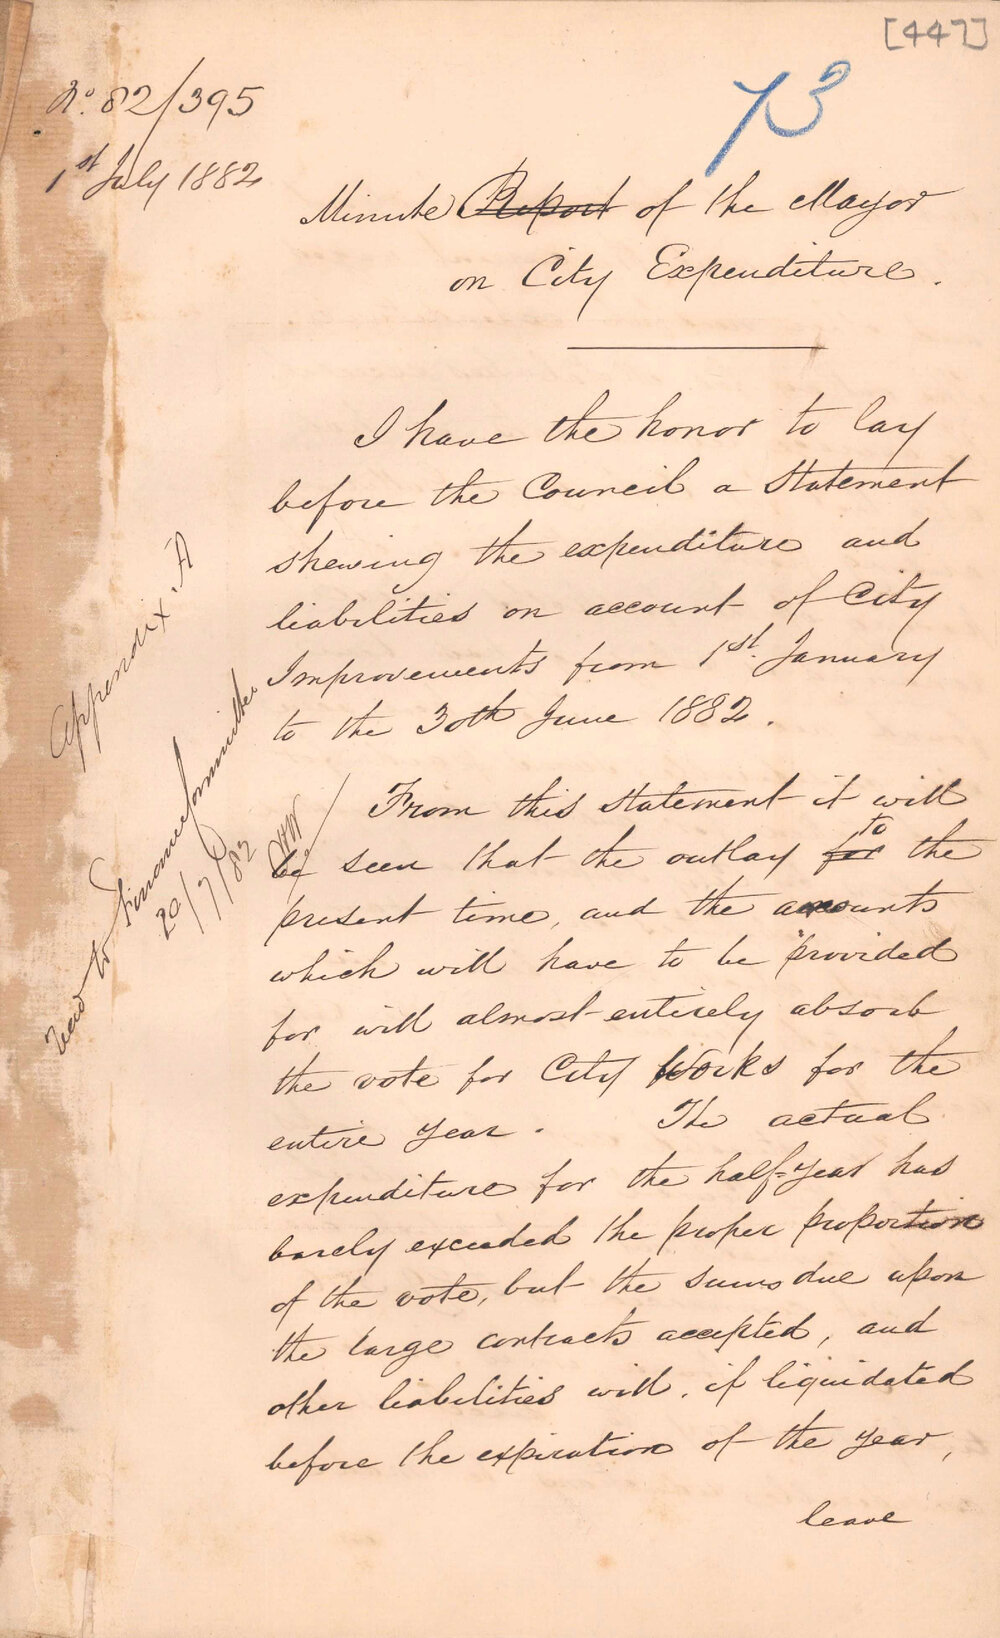 [447]
73
No. 82/395
1st July 1882
Minute Report of the Mayor
on City Expenditure.
I have the honor to lay
before the Council a Statement
shewing the expenditure and
liabilities on account of City
Improvements from 1st. January
to the 30th June 1882.
Appendix. A
From this statement it will
be seen that the outlay for to the
present time, and the amounts
which will have to be provided
for will almost entirely absorb
the vote for City Works for the
entire year. The actual
expenditure for the half-year has
barely exceeded the proper proportion
of the vote, but the sums due upon
the large contracts accepted, and
other liabilities will, if liquidated
before the expiration of the year,
leave
Read to Finance Committee
20/7/82